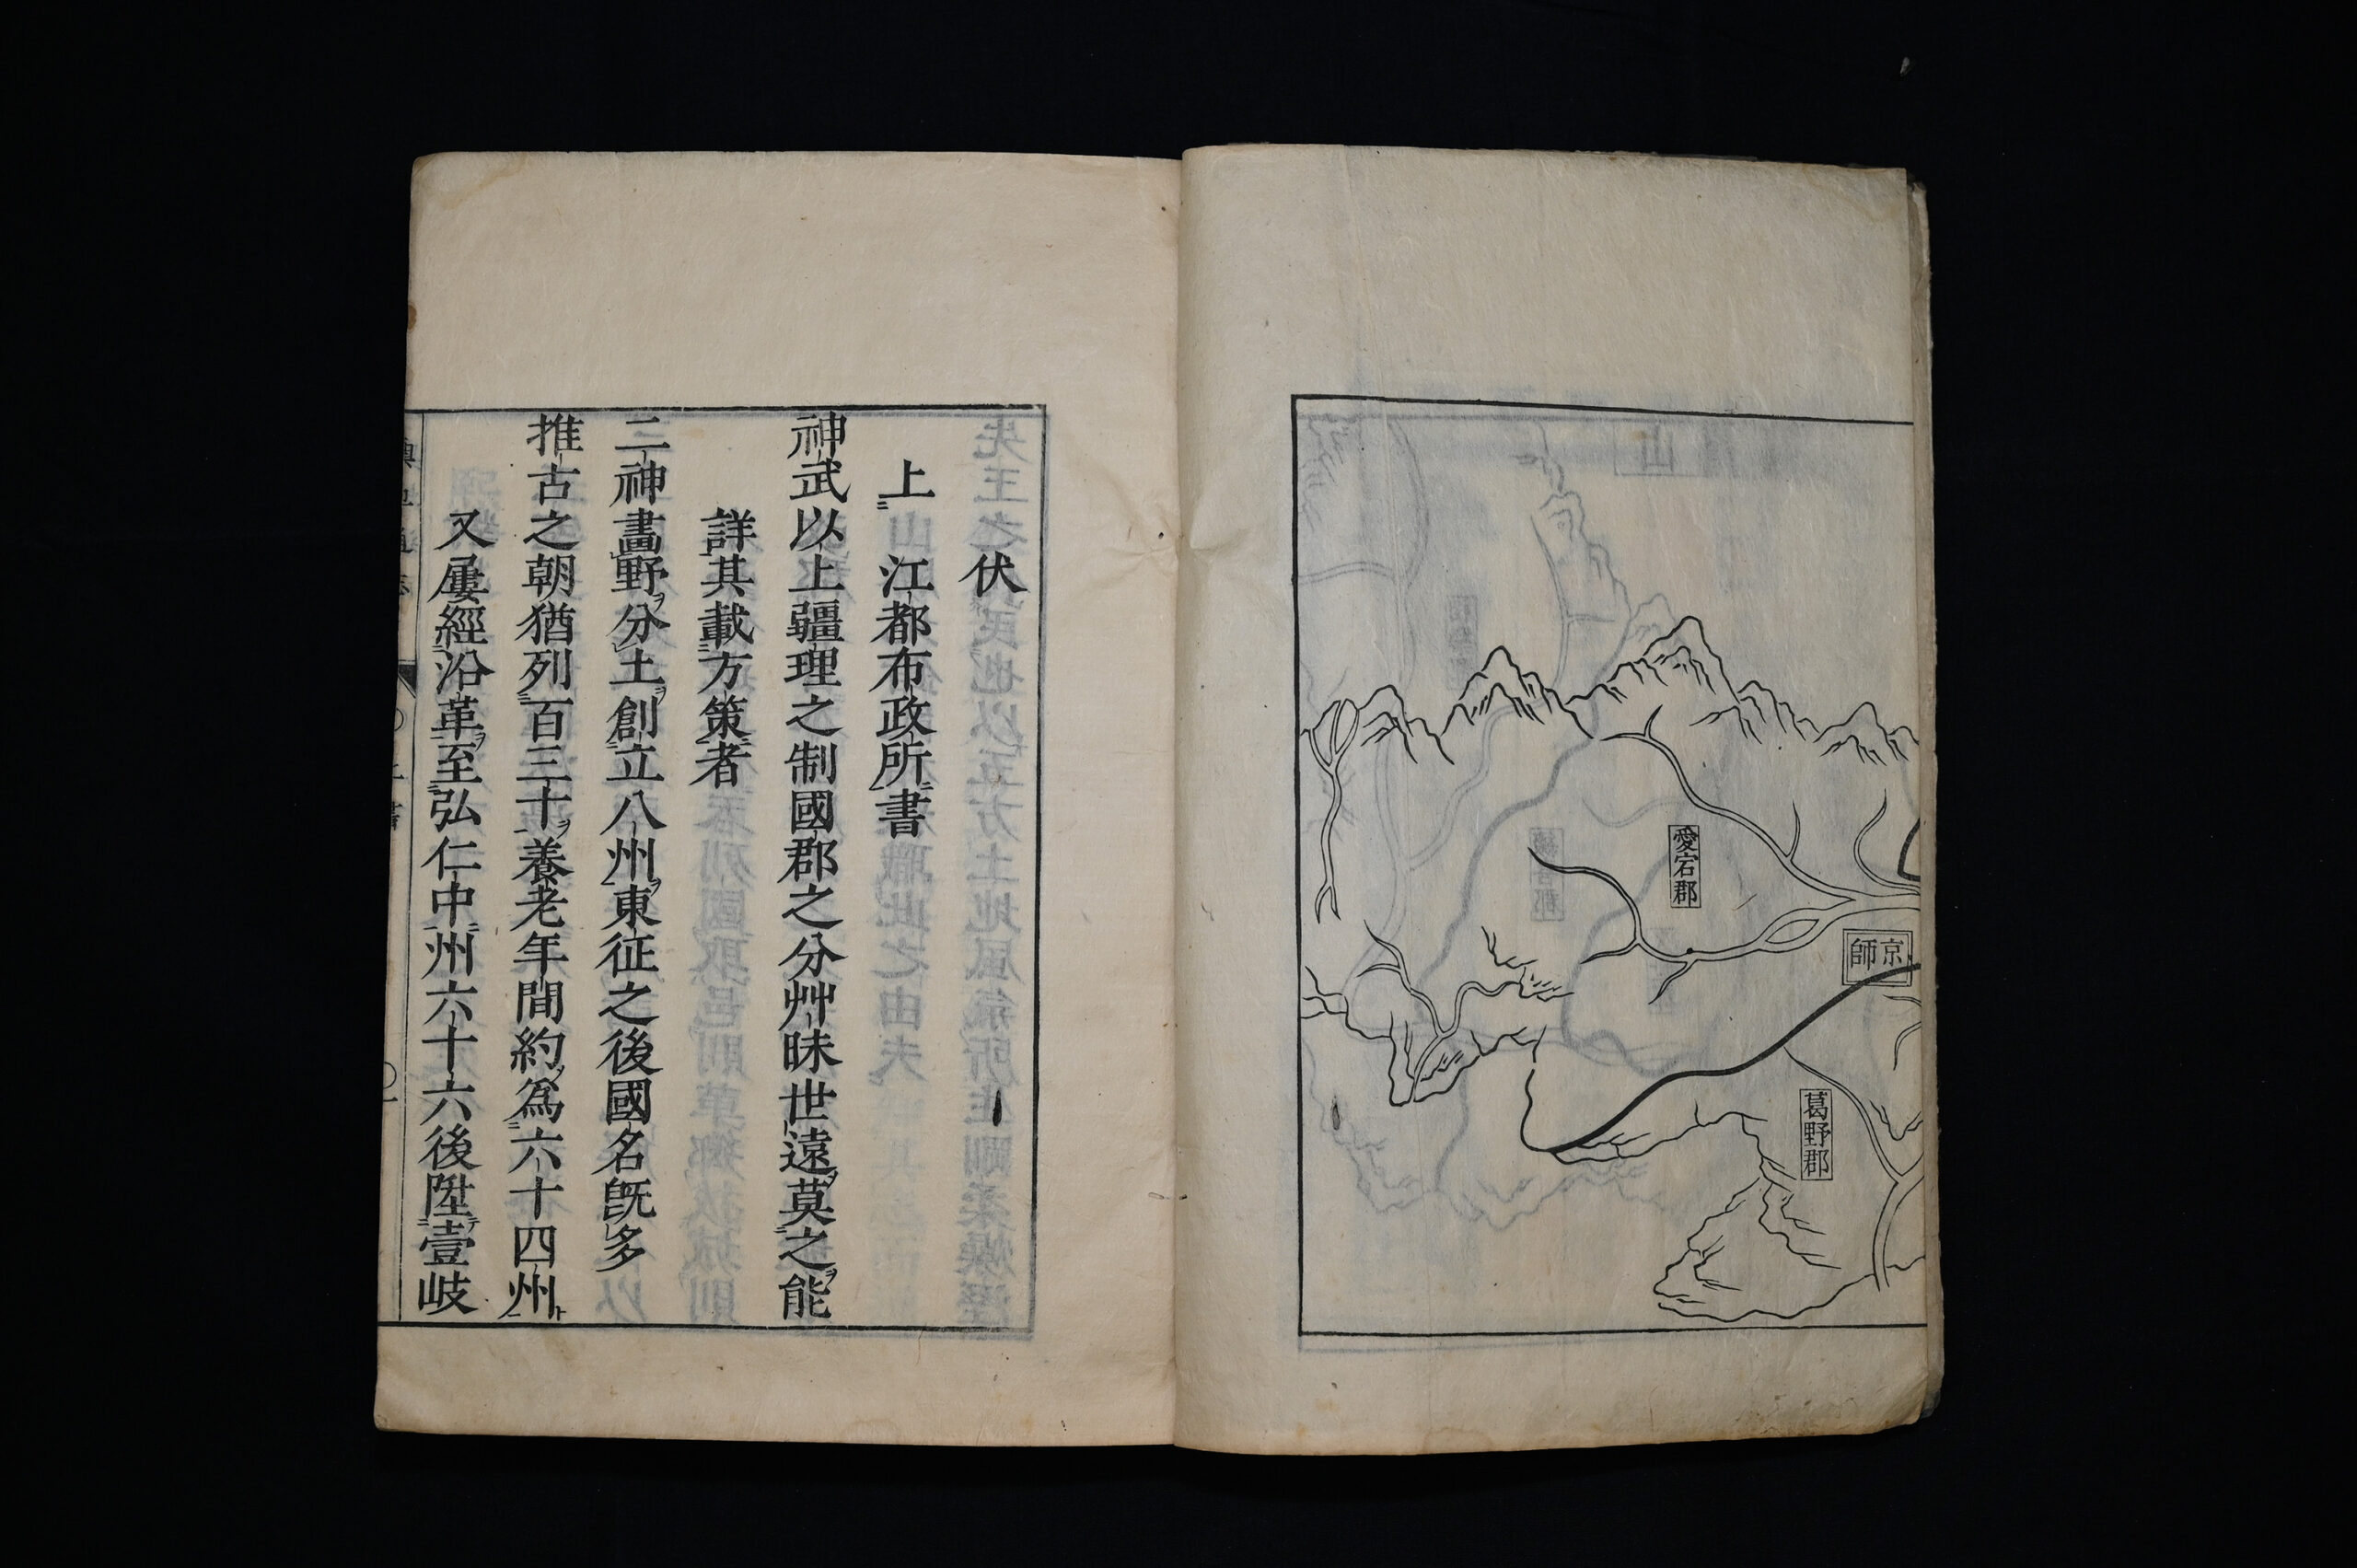 京師
愛宕郡
葛野郡
伏
上　江都布政所書
神武以上疆理之制國郡之分艸昧世遠莫之能
詳其載方策者
二神畫野分土創立八州東征之後國名旣多
推古之朝猶列百三十養老年間約爲六十四州
又屢經沿革至弘仁中州六十六後陞壹岐